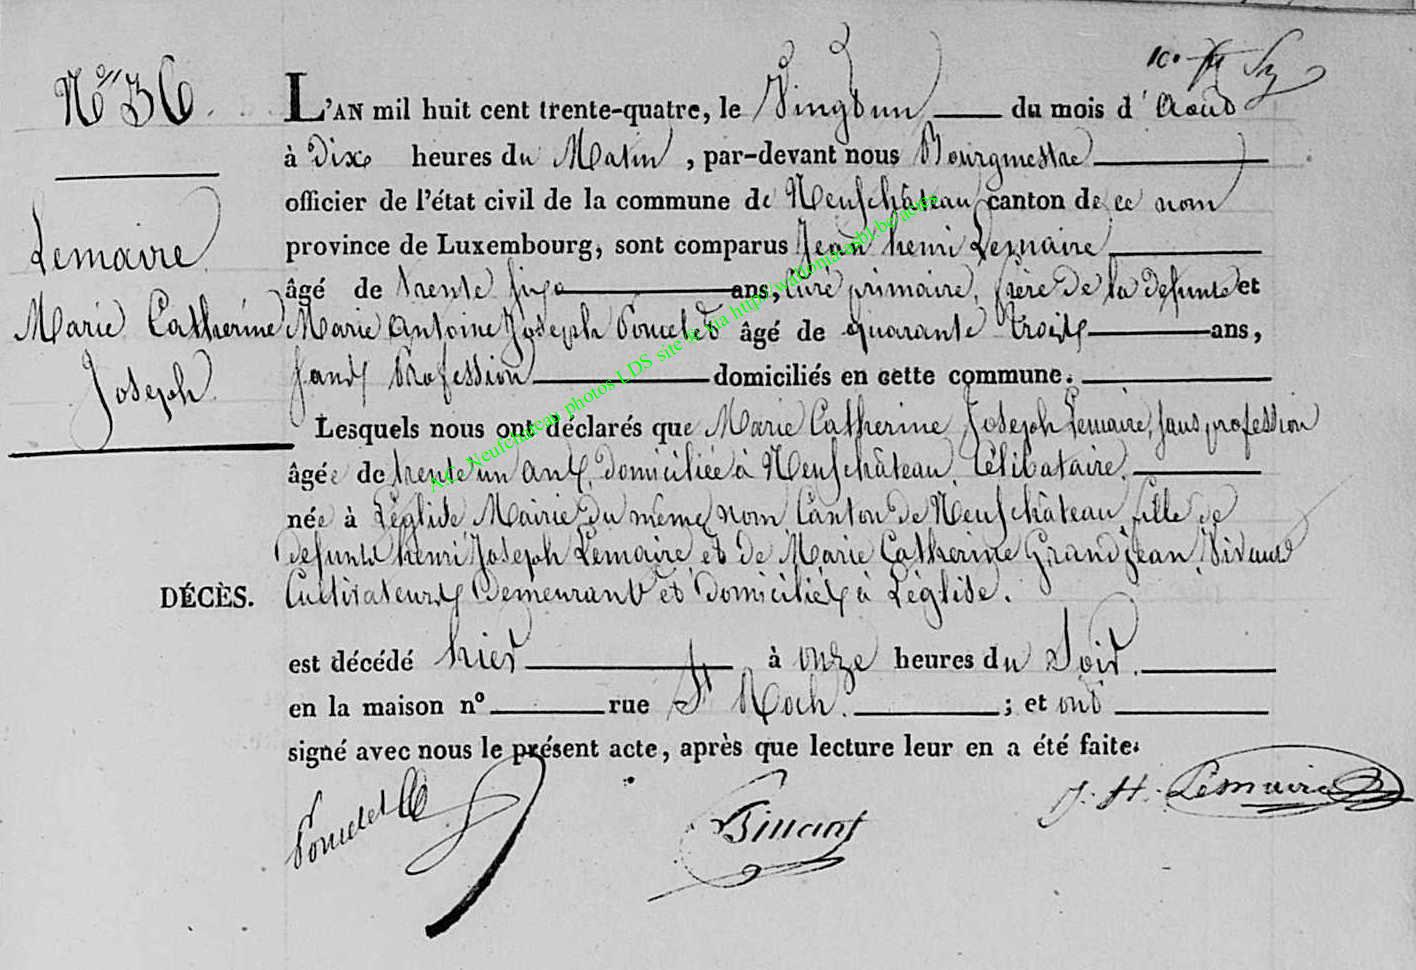 Nº 36.
L'AN mil huit cent trente-quatre, le Vingt un du mois d'Aout
à Dix heures du Matin, par-devant nous Bourgmestre
officier de l'état civil de la commune de Neufchâteau canton de ce nom
province de Luxembourg, sont comparus Jean henri Lemaire
âgé de trente six ans, curé primaire, frère de la defunte et
Marie Antoine Joseph Poncelet âgé de quarante trois ans,
sans Profession domiciliés en cette commune.
Lemaire
Marie Catherine
Joseph
Lesquels nous ont déclarés que Marie Catherine Joseph Lemaire, sans profession
âgée de trente un ans, domiciliée à Neufchâteau, Célibataire,
née à Léglise Mairie du même nom Canton de Neufchâteau, fille de
defunt henri Joseph Lemaire et de Marie Catherine Grandjean, Vivante
DÉCÈS.
Cultivateurs Demeurant et Domiciliés à Léglise.
est décédé hier à onze heures du Soir.
en la maison nº rue St Roch. ; et ont
signé avec nous le présent acte, après que lecture leur en a été faite.
Poncelet J. H. Lemaire
A.C. Neufchateau photos LDS site & via http://wallonia-asbl.be/actes